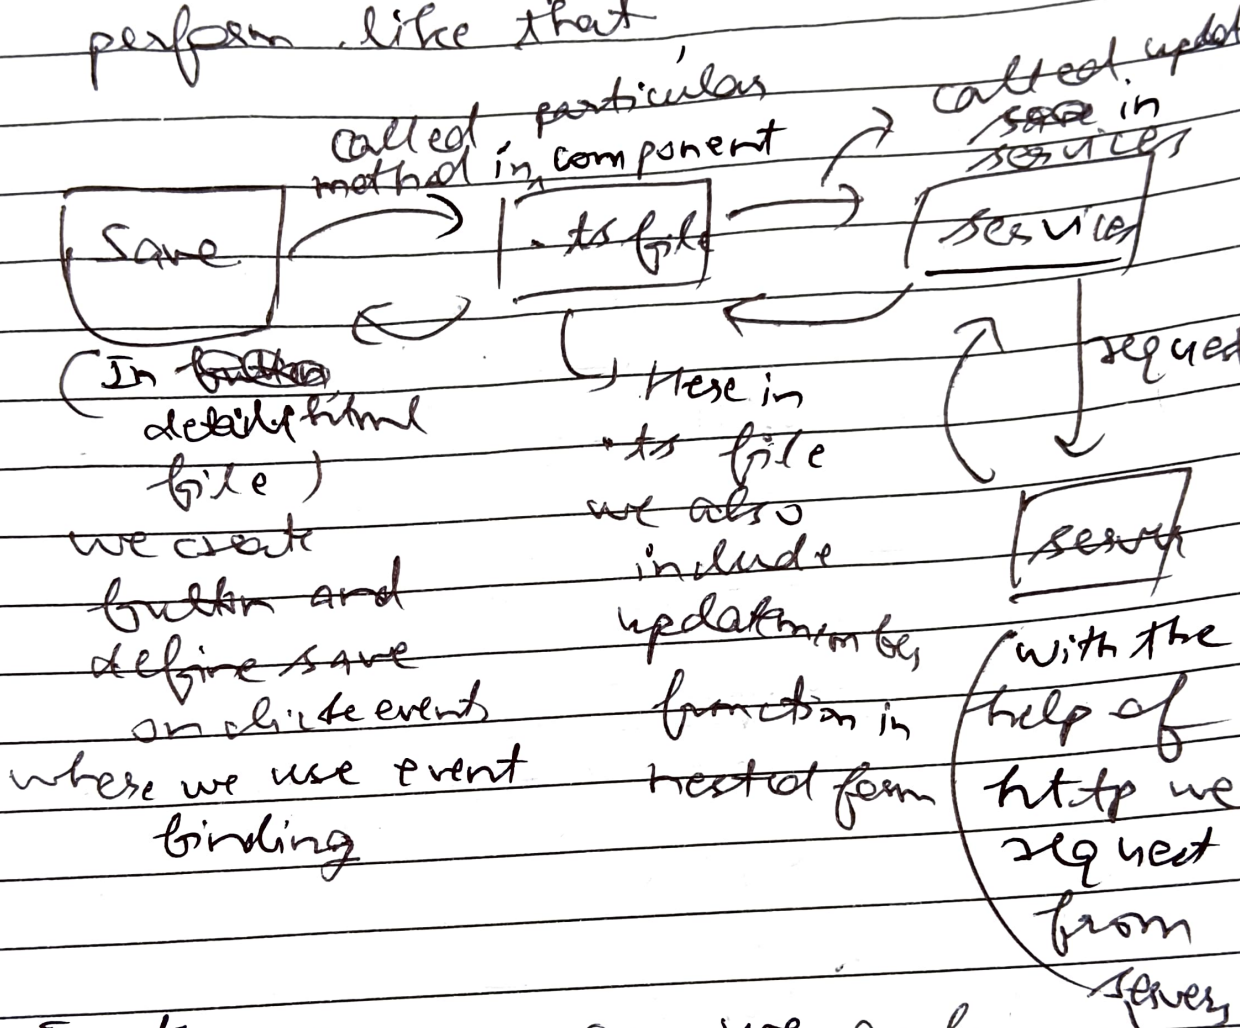 perform like that
called particular
method in component
called updat
in
services
Save
.ts file
services
request
(In
details html
file)
we create
button and
define save
on click event
where we use event
binding
Here in
.ts file
we also
include
updatemember
function in
nested form
server
with the
help of
http we
request
from
server